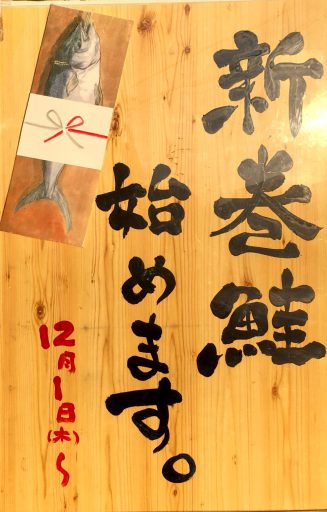 新巻鮭
始めます。
12月1日(木)～